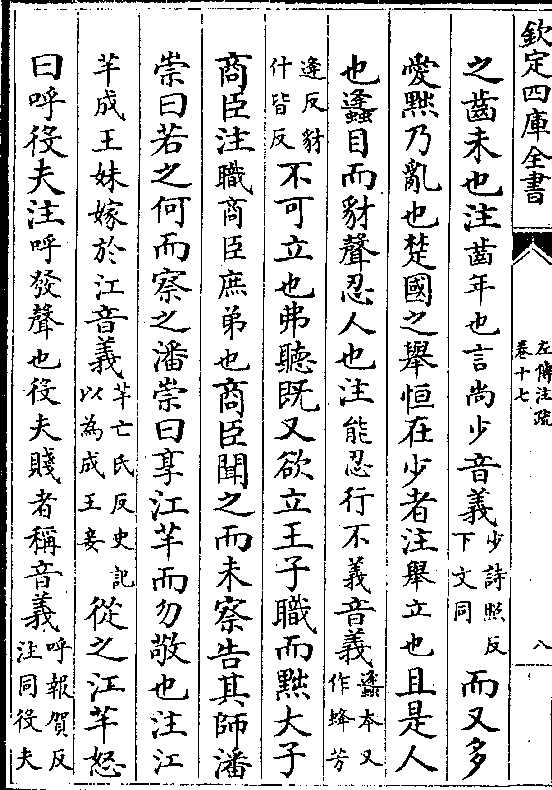 欽定四庫全書
左傳注疏
卷十七
八
之齒未也注齒年也言尚少音義少詩照反
下文同而又多
愛黜乃亂也楚國之舉恒在少者注舉立也且是人
也蠭目而豺聲忍人也注能忍行不義音義蠭本又
作蜂芳
逢反豺
什皆反不可立也弗聽既又欲立王子職而黜大子
商臣注職商臣庶弟也商臣聞之而未察告其師潘
崇曰若之何而察之潘崇曰享江芊而勿敬也注江
芊成王妹嫁於江音義芊亡氏反史記
以為成王妾從之江芊怒
曰呼役夫注呼發聲也役夫賤者稱音義呼報賀反
注同役夫